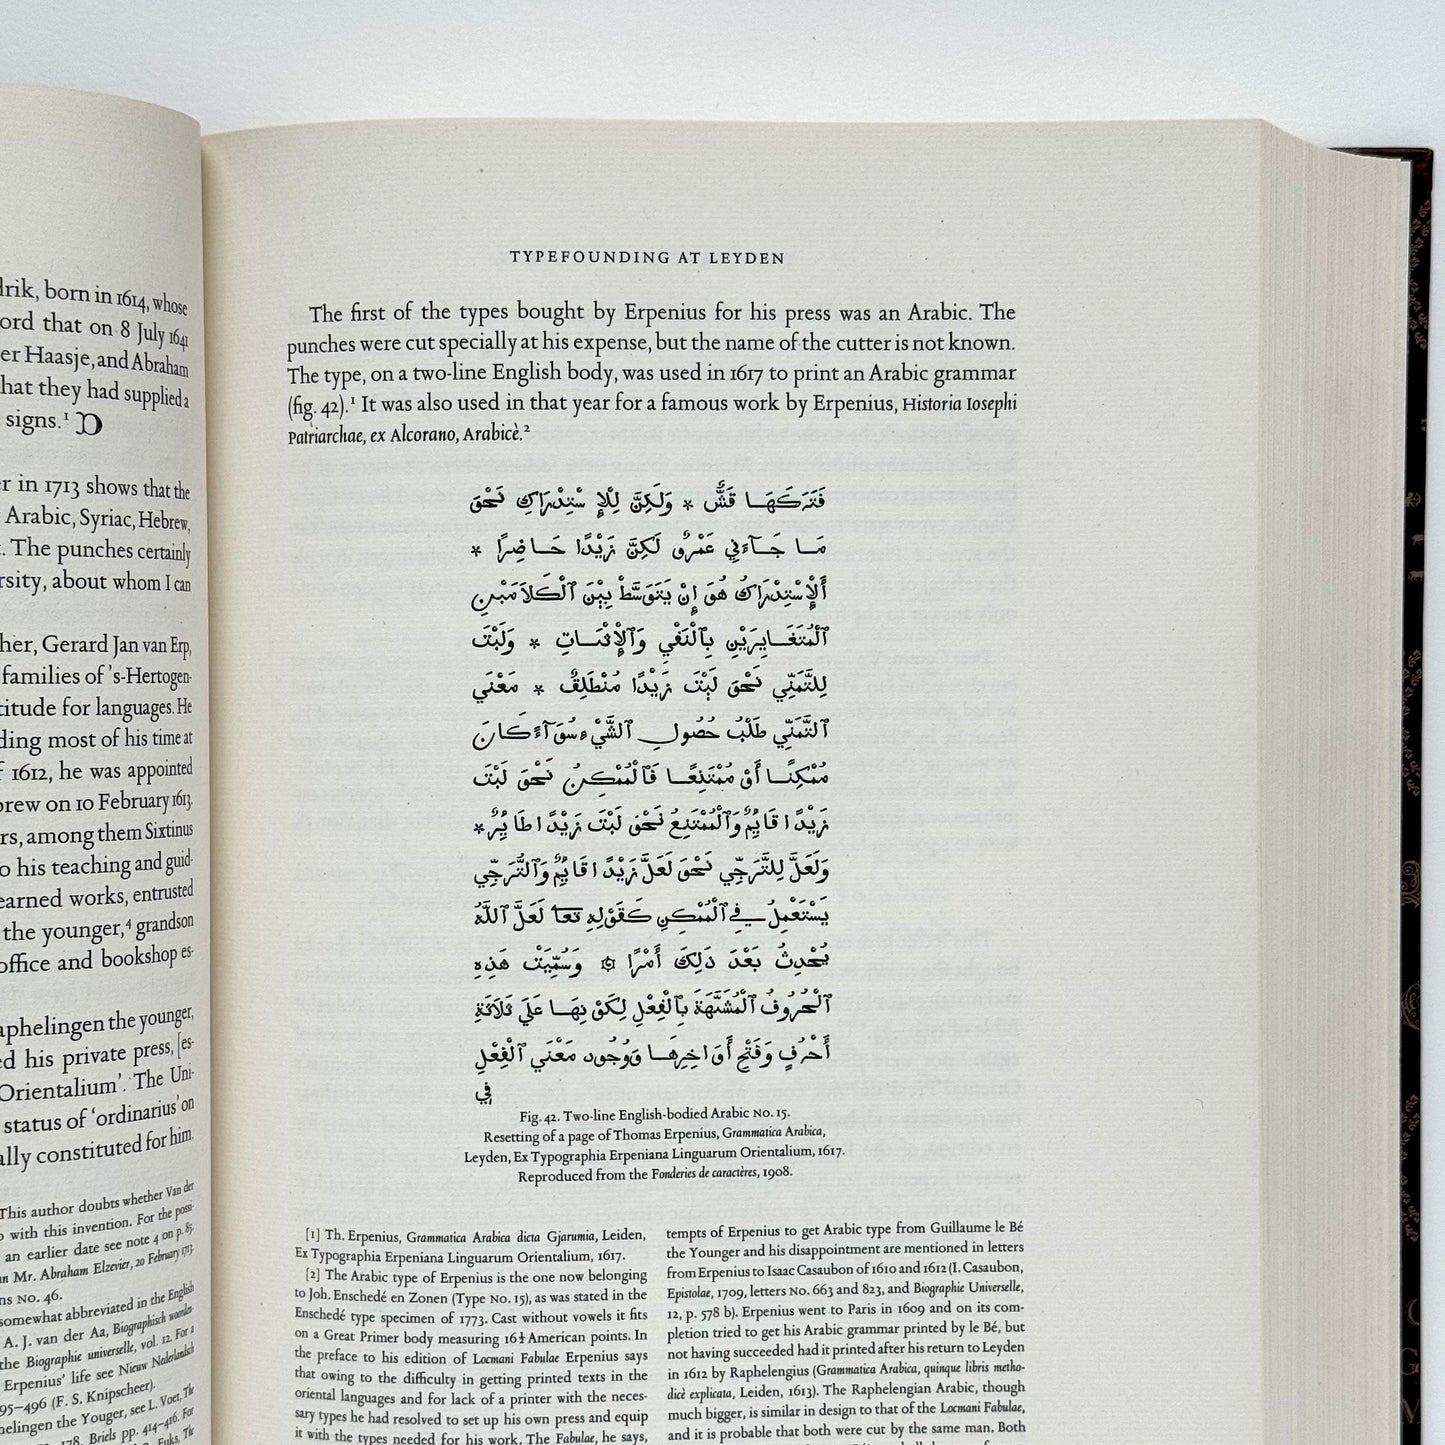 drik, born in 1614, whose
ord that on 8 July 1641
er Haasje, and Abraham
hat they had supplied a
signs.¹
er in 1713 shows that the
Arabic, Syriac, Hebrew,
. The punches certainly
rsity, about whom I can
her, Gerard Jan van Erp,
families of 's-Hertogen-
titude for languages. He
ding most of his time at
f 1612, he was appointed
brew on 10 February 1613.
rs, among them Sixtinus
o his teaching and guid-
earned works, entrusted
the younger,⁴ grandson
office and bookshop es-
aphelingen the younger,
ed his private press, [es-
Orientalium'. The Uni-
status of 'ordinarius' on
ally constituted for him.
This author doubts whether Van der
o with this invention. For the possi-
an earlier date see note 4 on p. 85.
an Mr. Abraham Elzevier, 20 February 1713.
ns No. 46.
somewhat abbreviated in the English
A. J. van der Aa, Biographisch woorden-
the Biographie universelle, vol. 12. For a
Erpenius' life see Nieuw Nederlandsch
95–496 (F. S. Knipscheer).
helingen the Youger, see L. Voet, The
178, Briels pp. 414–416. For
TYPEFOUNDING AT LEYDEN
The first of the types bought by Erpenius for his press was an Arabic. The
punches were cut specially at his expense, but the name of the cutter is not known.
The type, on a two-line English body, was used in 1617 to print an Arabic grammar
(fig. 42).¹ It was also used in that year for a famous work by Erpenius, Historia Iosephi
Patriarchae, ex Alcorano, Arabicè.²
فَتَرَكَهَا قَسٌّ * وَلَكِنَّ لِلْإِسْتِدْرَاكِ نَحْوَ
مَا جَآءَنِي عَمْرٌو لَكِنَّ زَيْدًا حَاضِرًا *
أَلْإِسْتِدْرَاكُ هُوَ إِنْ يَتَوَسَّطْ بَيْنَ ٱلْكَلَامَيْنِ
ٱلْمُتَغَايِرَيْنِ بِٱلنَّفْيِ وَٱلْإِثْبَاتِ * وَلَيْتَ
لِلتَّمَنِّي نَحْوَ لَيْتَ زَيْدًا مُنْطَلِقٌ * مَعْنَي
ٱلتَّمَنِّي طَلْبُ حُصُولِ ٱلشَّيْءِ سُوَآءً كَانَ
مُمْكِنًا أَوْ مُمْتَنِعًا فَٱلْمُمْكِنُ نَحْوَ لَيْتَ
زَيْدًا قَايِمٌ وَٱلْمُمْتَنِعُ نَحْوَ لَيْتَ زَيْدًا طَايِرٌ *
وَلَعَلَّ لِلتَّرَجِّي نَحْوَ لَعَلَّ زَيْدًا قَايِمٌ وَٱلتَّرَجِّي
يَسْتَعْمِلُ فِي ٱلْمُمْكِنِ كَقَوْلِهِ تعا لَعَلَّ ٱللَّهُ
يُحْدِثُ بَعْدَ ذَلِكَ أَمْرًا ۞ وَسُمِّيَتْ هَذِهِ
ٱلْحُرُوفُ ٱلْمُشَبَّهَةَ بِٱلْفِعْلِ لِكَوْنِهَا عَلَي ثَلَاثَةِ
أَحْرُفٍ وَفَتْحِ أَوَاخِرِهَا وَوُجُودِ مَعْنَي ٱلْفِعْلِ
فِي
Fig. 42. Two-line English-bodied Arabic No. 15.
Resetting of a page of Thomas Erpenius, Grammatica Arabica,
Leyden, Ex Typographia Erpeniana Linguarum Orientalium, 1617.
Reproduced from the Fonderies de caractères, 1908.
[1] Th. Erpenius, Grammatica Arabica dicta Gjarumia, Leiden,
Ex Typographia Erpeniana Linguarum Orientalium, 1617.
[2] The Arabic type of Erpenius is the one now belonging
to Joh. Enschedé en Zonen (Type No. 15), as was stated in the
Enschedé type specimen of 1773. Cast without vowels it fits
on a Great Primer body measuring 16½ American points. In
the preface to his edition of Locmani Fabulae Erpenius says
that owing to the difficulty in getting printed texts in the
oriental languages and for lack of a printer with the neces-
sary types he had resolved to set up his own press and equip
it with the types needed for his work. The Fabulae, he says,
tempts of Erpenius to get Arabic type from Guillaume le Bé
the Younger and his disappointment are mentioned in letters
from Erpenius to Isaac Casaubon of 1610 and 1612 (I. Casaubon,
Epistolae, 1709, letters No. 663 and 823, and Biographie Universelle,
12, p. 578 b). Erpenius went to Paris in 1609 and on its com-
pletion tried to get his Arabic grammar printed by le Bé, but
not having succeeded had it printed after his return to Leyden
in 1612 by Raphelengius (Grammatica Arabica, quinque libris metho-
dicè explicata, Leiden, 1613). The Raphelengian Arabic, though
much bigger, is similar in design to that of the Locmani Fabulae,
and it is probable that both were cut by the same man. Both